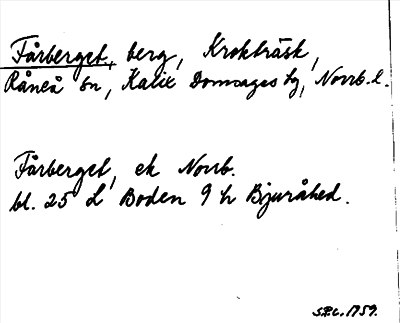 Fårberget, berg, Krokträsk,
Råneå sn, Kalix Domsagas tg, Norrb. l.
Fårberget, ek Norrb.
bl. 25 L Boden 9 h Bjuråhed.
S.P.C. 1759.